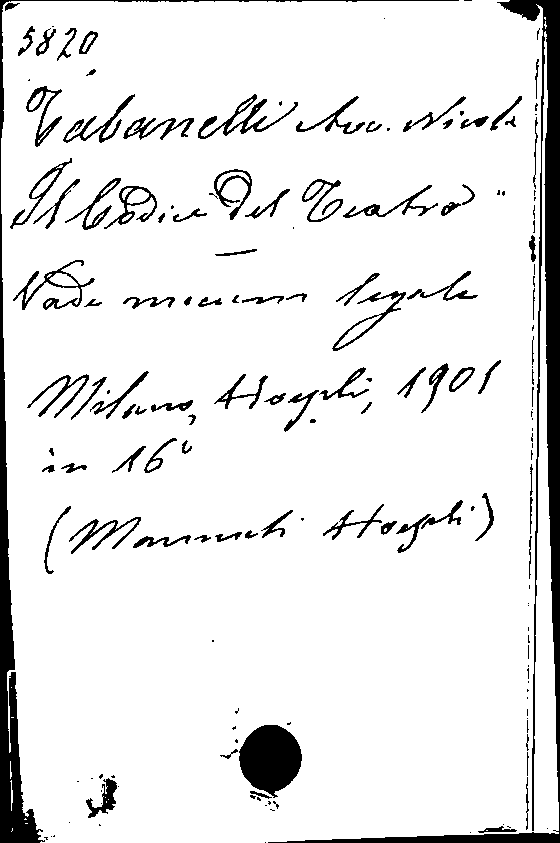 5820
Tabanelli Avv. Nicola
Il Codice Del Teatro "
Vade mecum legale
Milano, Hoepli, 1901
in 16°
(Manuali Hoepli)